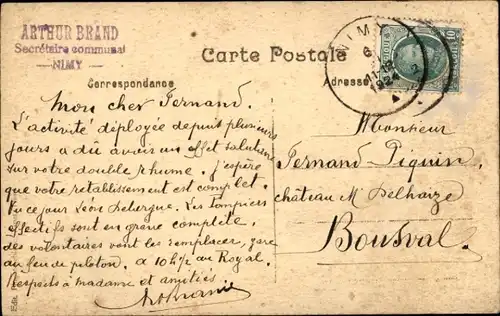 ARTHUR BRAND
Secrétaire communal
NIMY
Carte Postale
Correspondance
Adresse
NIMY
6
11-12
1924
10
Mon cher Fernand.
L'activité déployée depuis plusieurs
jours a dû avoir un effet salutaire
sur votre double rhume. J'espère
que votre retablissement est complet.
Vu ce jour Léon Debergue. Les Pompiers
effectifs sont en grève complète
des volontaires vont les remplacer, gare
au feu de peloton. à 10 h/2 au Royal.
Respects à madame et amitiés
Monsieur
Fernand Piquin
château Mr Delhaize
Bousval.
Edit.